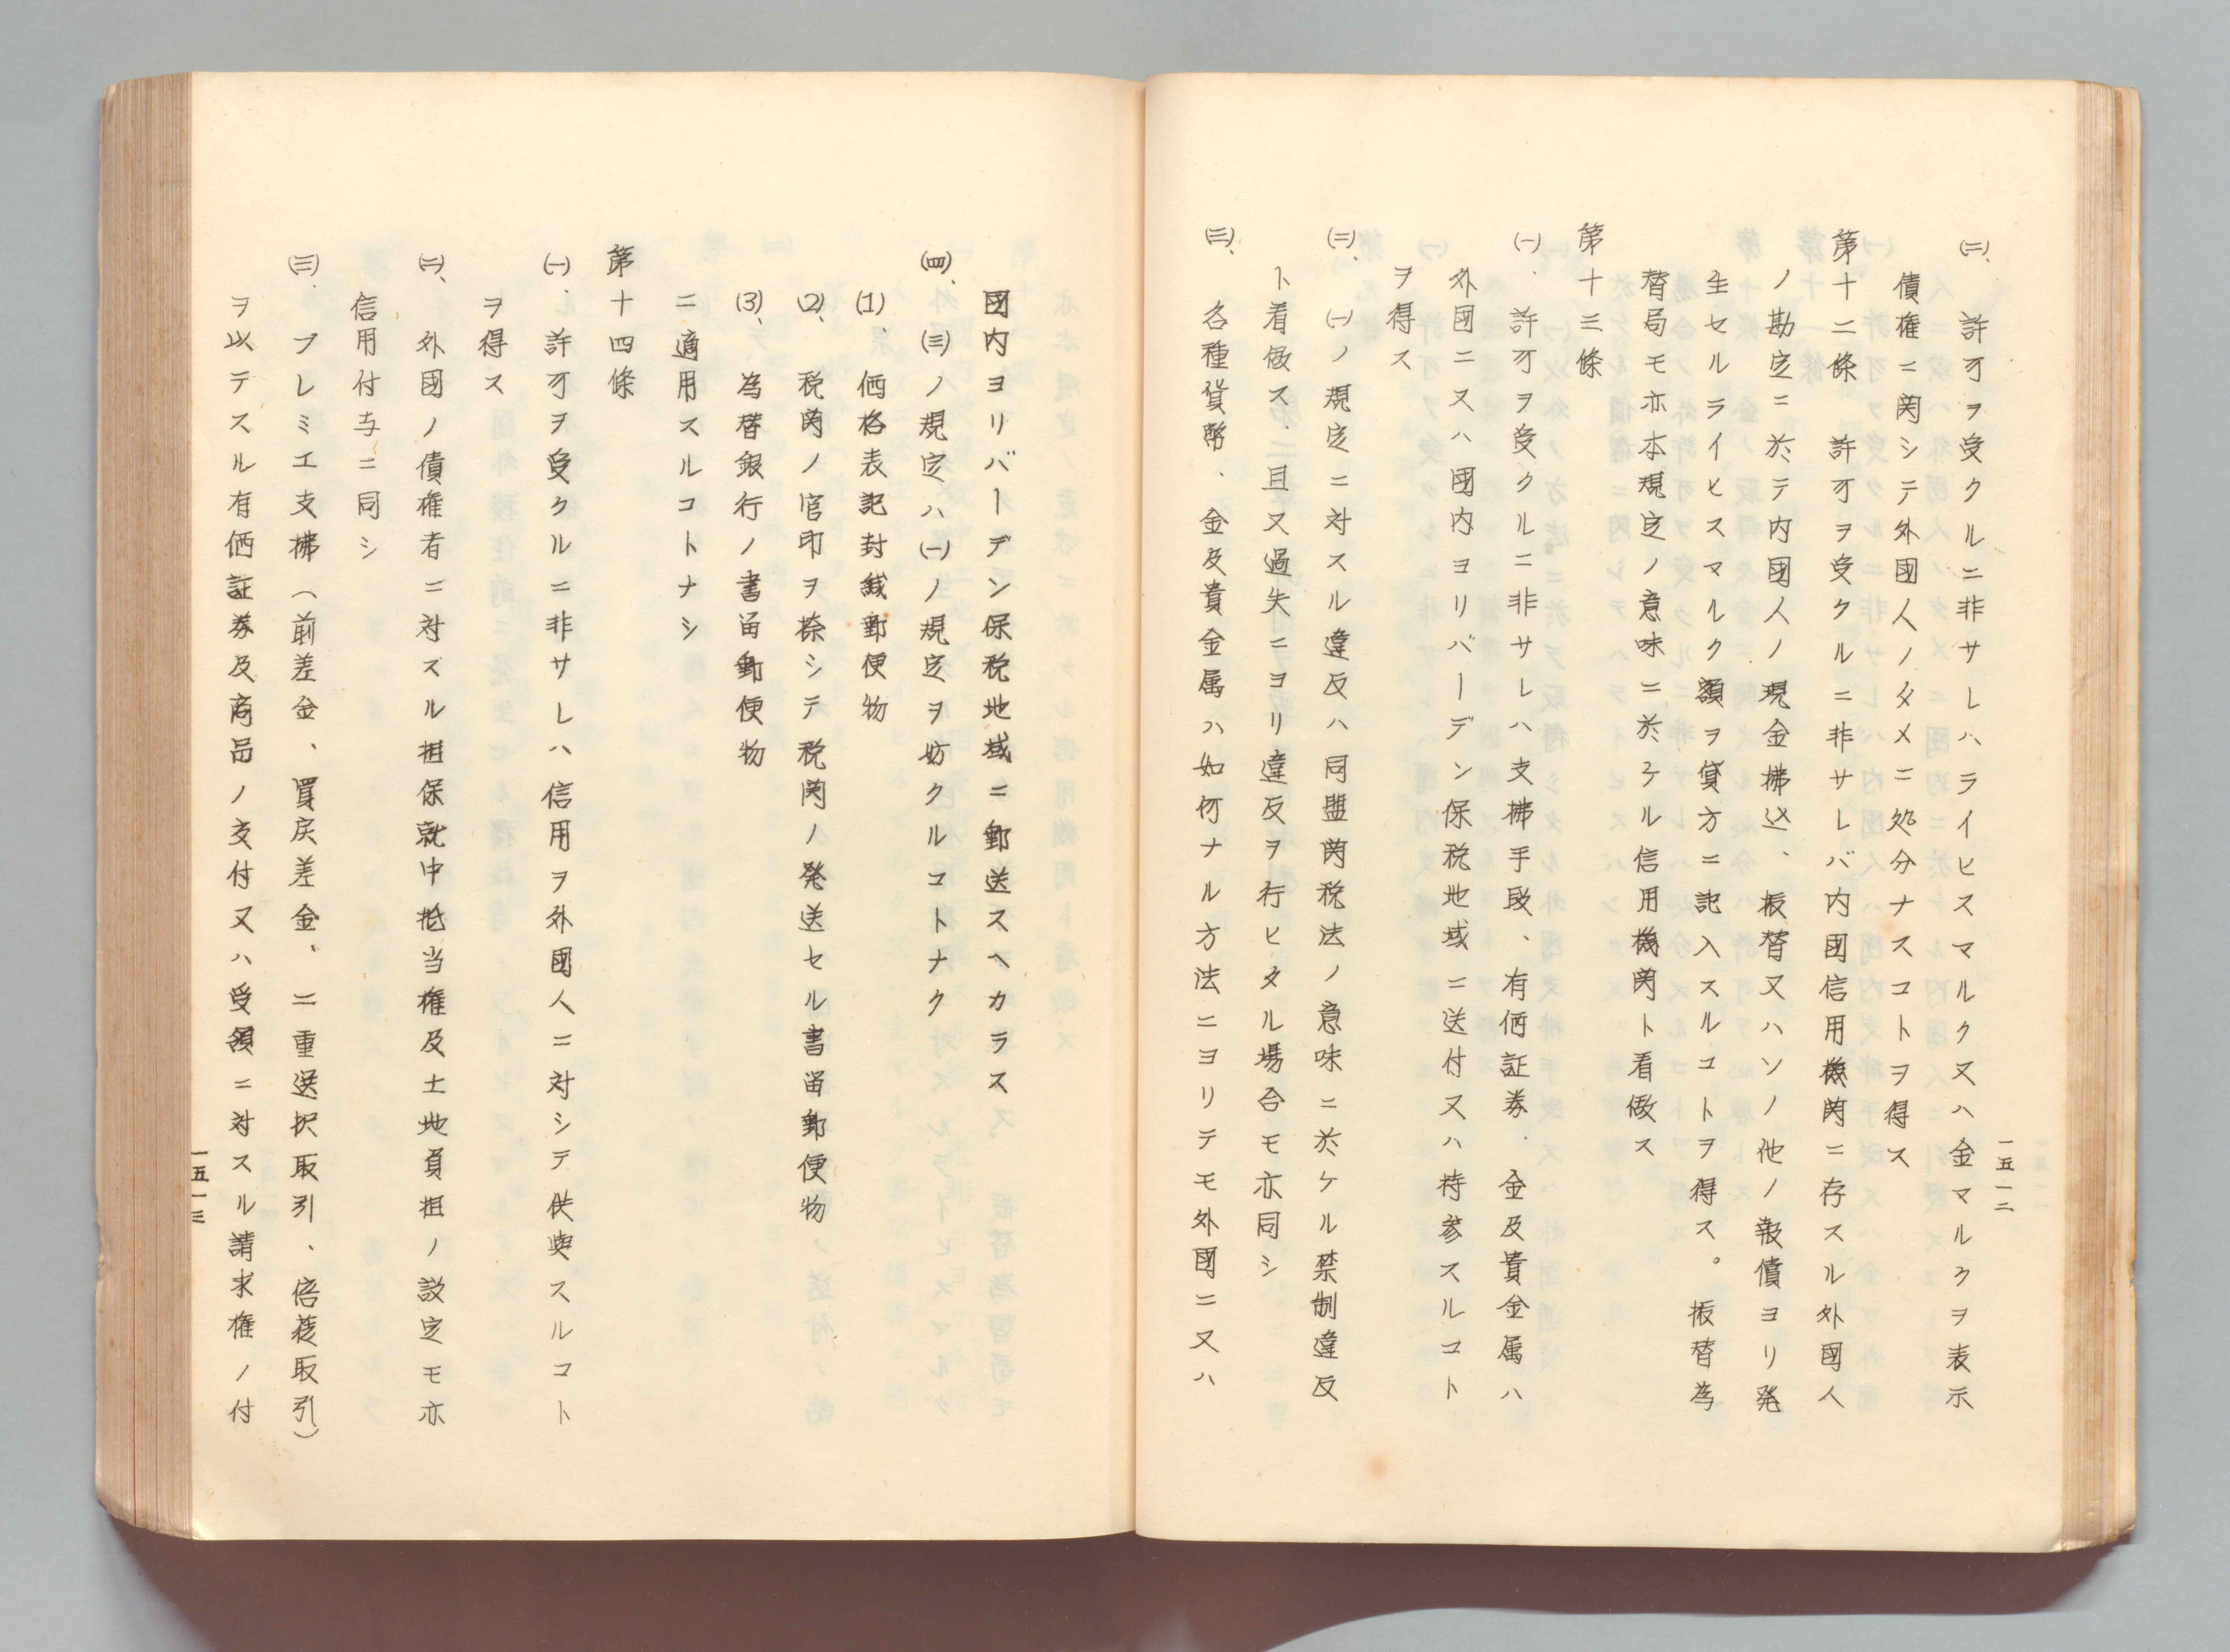 一五一二
(二)、許可ヲ受クルニ非サレハライヒスマルク又ハ金マルクヲ表示
債権ニ関シテ外國人ノタメニ処分ナスコトヲ得ス
第十二條　許可ヲ受クルニ非サレバ内國信用機関ニ存スル外國人
ノ勘定ニ於テ内國人ノ現金拂込、振替又ハソノ他ノ報償ヨリ発
生セルライヒスマルク額ヲ貸方ニ記入スルコトヲ得ス。振替為
替局モ亦本規定ノ意味ニ於ケル信用機関ト看做ス
第十三條
(一)、許可ヲ受クルニ非サレハ支拂手段、有価証券、金及貴金属ハ
外國ニ又ハ國内ヨリバーデン保税地域ニ送付又ハ持参スルコト
ヲ得ス
(二)、(一)ノ規定ニ対スル違反ハ同盟関税法ノ意味ニ於ケル禁制違反
ト看做ス、且又過失ニヨリ違反ヲ行ヒタル場合モ亦同シ
(三)、各種貨幣、金及貴金属ハ如何ナル方法ニヨリテモ外國ニ又ハ
國内ヨリバーデン保税地域ニ郵送スヘカラス
(四)、(三)ノ規定ハ(一)ノ規定ヲ妨クルコトナク
(1)、価格表記封緘郵便物
(2)、税関ノ官印ヲ捺シテ税関ノ発送セル書留郵便物
(3)、為替銀行ノ書留郵便物
ニ適用スルコトナシ
第十四條
(一)、許可ヲ受クルニ非サレハ信用ヲ外國人ニ対シテ供與スルコト
ヲ得ス
(二)、外國ノ債権者ニ対スル担保就中抵当権及土地負担ノ設定モ亦
信用付与ニ同シ
(三)、プレミエ支拂(前差金、買戻差金、二重選択取引、倍棧取引)
ヲ以テスル有価証券及商品ノ交付又ハ受領ニ対スル請求権ノ付
一五一三